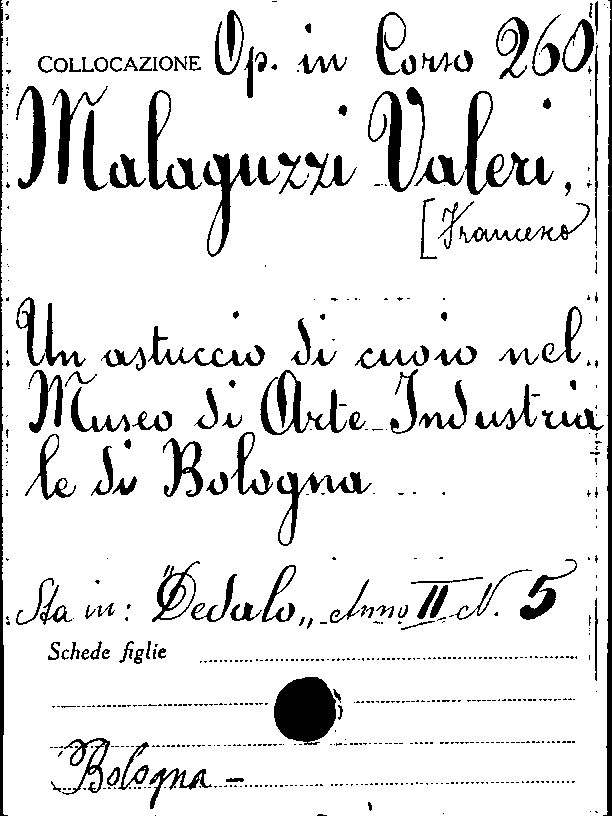 COLLOCAZIONE Op. in Corso 260
Malaguzzi Valeri,
[Francesco
Un astuccio di cuoio nel
Museo di Arte Industria
le di Bologna
Sta in: "Dedalo,, Anno II N. 5
Schede figlie
Bologna -